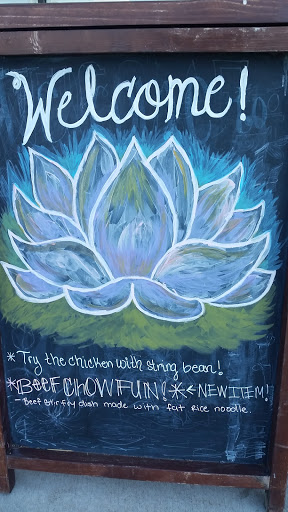 Welcome!
* Try the chicken with string bean!
* BEEF CHOW FUN! * ← NEW ITEM!
- Beef stir fry dish made with fat Rice noodle.